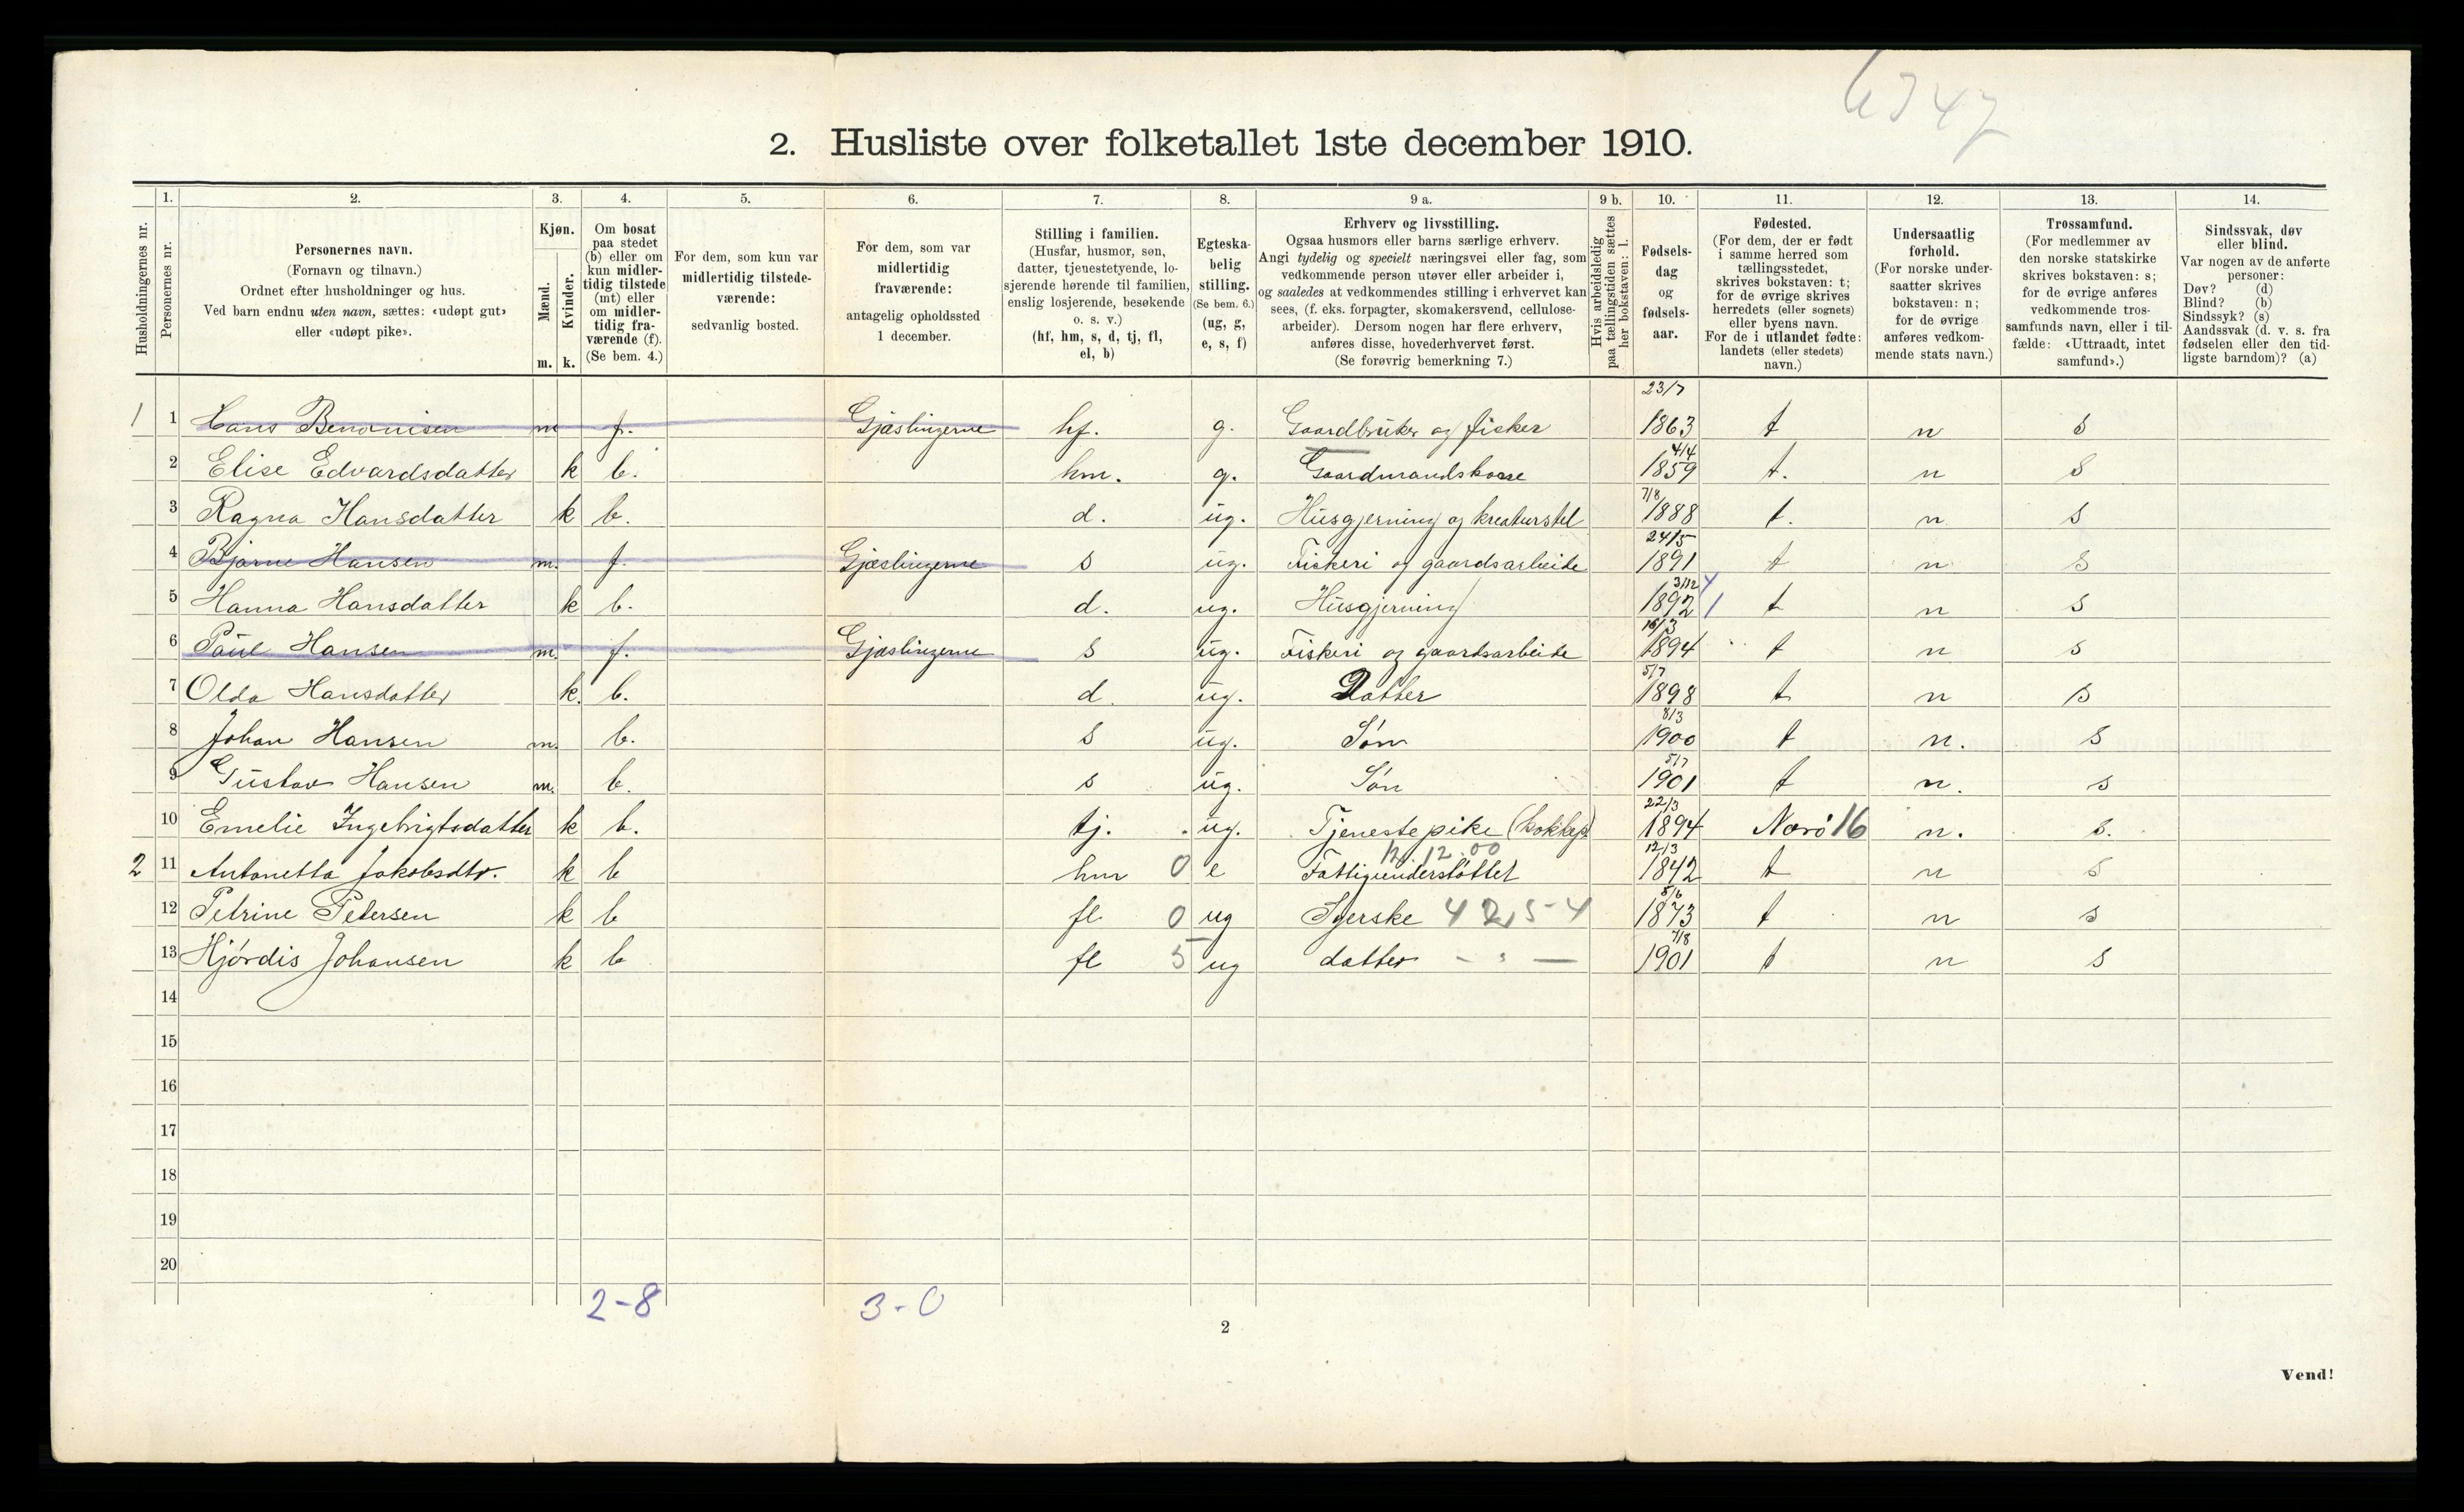 6347
2. Husliste over folketallet 1ste december 1910.
Husholdningernes nr.
1.
Personernes nr.
2.
Personernes navn.
(Fornavn og tilnavn.)
Ordnet efter husholdninger og hus.
Ved barn endnu uten navn, sættes: «udøpt gut»
eller «udøpt pike».
3.
Kjøn.
Mænd.
Kvinder.
m. k.
4.
Om bosat
paa stedet
(b) eller om
kun midler-
tidig tilstede
(mt) eller
om midler-
tidig fra-
værende (f).
(Se bem. 4.)
5.
For dem, som kun var
midlertidig tilstede-
værende:
sedvanlig bosted.
6.
For dem, som var
midlertidig
fraværende:
antagelig opholdssted
1 december.
7.
Stilling i familien.
(Husfar, husmor, søn,
datter, tjenestetyende, lo-
sjerende hørende til familien,
enslig losjerende, besøkende
o. s. v.)
(hf, hm, s, d, tj, fl,
el, b)
8.
Egteska-
belig
stilling.
(Se bem. 6.)
(ug, g,
e, s, f)
9 a.
Erhverv og livsstilling.
Ogsaa husmors eller barns særlige erhverv.
Angi tydelig og specielt næringsvei eller fag, som
vedkommende person utøver eller arbeider i,
og saaledes at vedkommendes stilling i erhvervet kan
sees, (f. eks. forpagter, skomakersvend, cellulose-
arbeider). Dersom nogen har flere erhverv,
anføres disse, hovederhvervet først.
(Se forøvrig bemerkning 7.)
9 b.
Hvis arbeidsledig
paa tællingstiden sættes
her bokstaven: l.
10.
Fødsels-
dag
og
fødsels-
aar.
11.
Fødested.
(For dem, der er født
i samme herred som
tællingsstedet,
skrives bokstaven: t;
for de øvrige skrives
herredets (eller sognets)
eller byens navn.
For de i utlandet fødte:
landets (eller stedets)
navn.)
12.
Undersaatlig
forhold.
(For norske under-
saatter skrives
bokstaven: n;
for de øvrige
anføres vedkom-
mende stats navn.)
13.
Trossamfund.
(For medlemmer av
den norske statskirke
skrives bokstaven: s;
for de øvrige anføres
vedkommende tros-
samfunds navn, eller i til-
fælde: «Uttraadt, intet
samfund».)
14.
Sindssvak, døv
eller blind.
Var nogen av de anførte
personer:
Døv? (d)
Blind? (b)
Sindssyk? (s)
Aandssvak (d. v. s. fra
fødselen eller den tid-
ligste barndom)? (a)
1 1 Hans Benonisen m f. Gjæslingerne hf. g. Gaardbruker og fisker 23/7 1863 t n s
2 Elise Edvardsdatter k b. hm. g. Gaardmandskone 4/4 1859 t. n s
3 Ragna Hansdatter k b. d. ug. Husgjerning og kreaturstel 7/8 1888 t. n s
4 Bjarne Hansen m. f. Gjæslingerne s ug. Fiskeri og gaardsarbeide 24/5 1891 t n s
5 Hanna Hansdatter k b. d. ug. Husgjerning 3/12 1892 t n s
6 Paul Hansen m. f. Gjæslingerne s ug. Fiskeri og gaardsarbeide 16/3 1894 t n s
7 Olda Hansdatter k. b. d. ug. Datter 5/7 1898 t n s
8 Johan Hansen m. b. s ug. Søn 8/3 1900 t n. s
9 Gustav Hansen m. b. s ug. Søn 5/7 1901 t n. s
10 Emelie Ingebrigtsdatter k b. tj. ug. Tjenestepike 22/3 1894 Nærö 16 n. s.
12.12.00
2 11 Antonetta Jakobsdtr. k b hm 0 e Fattigunderstøttet 12/3 1842 t n s
12 Petrine Petersen k b fl 0 ug Syerske 5/6 1873 t n s
13 Hjørdis Johansen k b fl 5 ug datter - " - 7/8 1901 t n s
14
15
16
17
18
19
20
2-8 3-0
2
Vend!